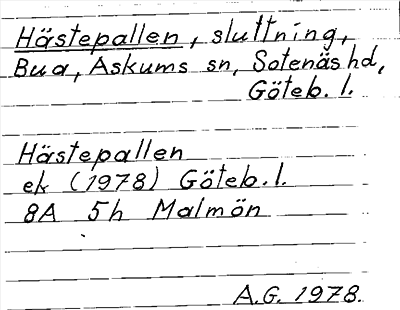 Hästepallen, sluttning,
Bua, Askums sn, Sotenäs hd,
Göteb. l.
Hästepallen
ek (1978) Göteb. l.
8A 5h Malmön
A.G. 1978.